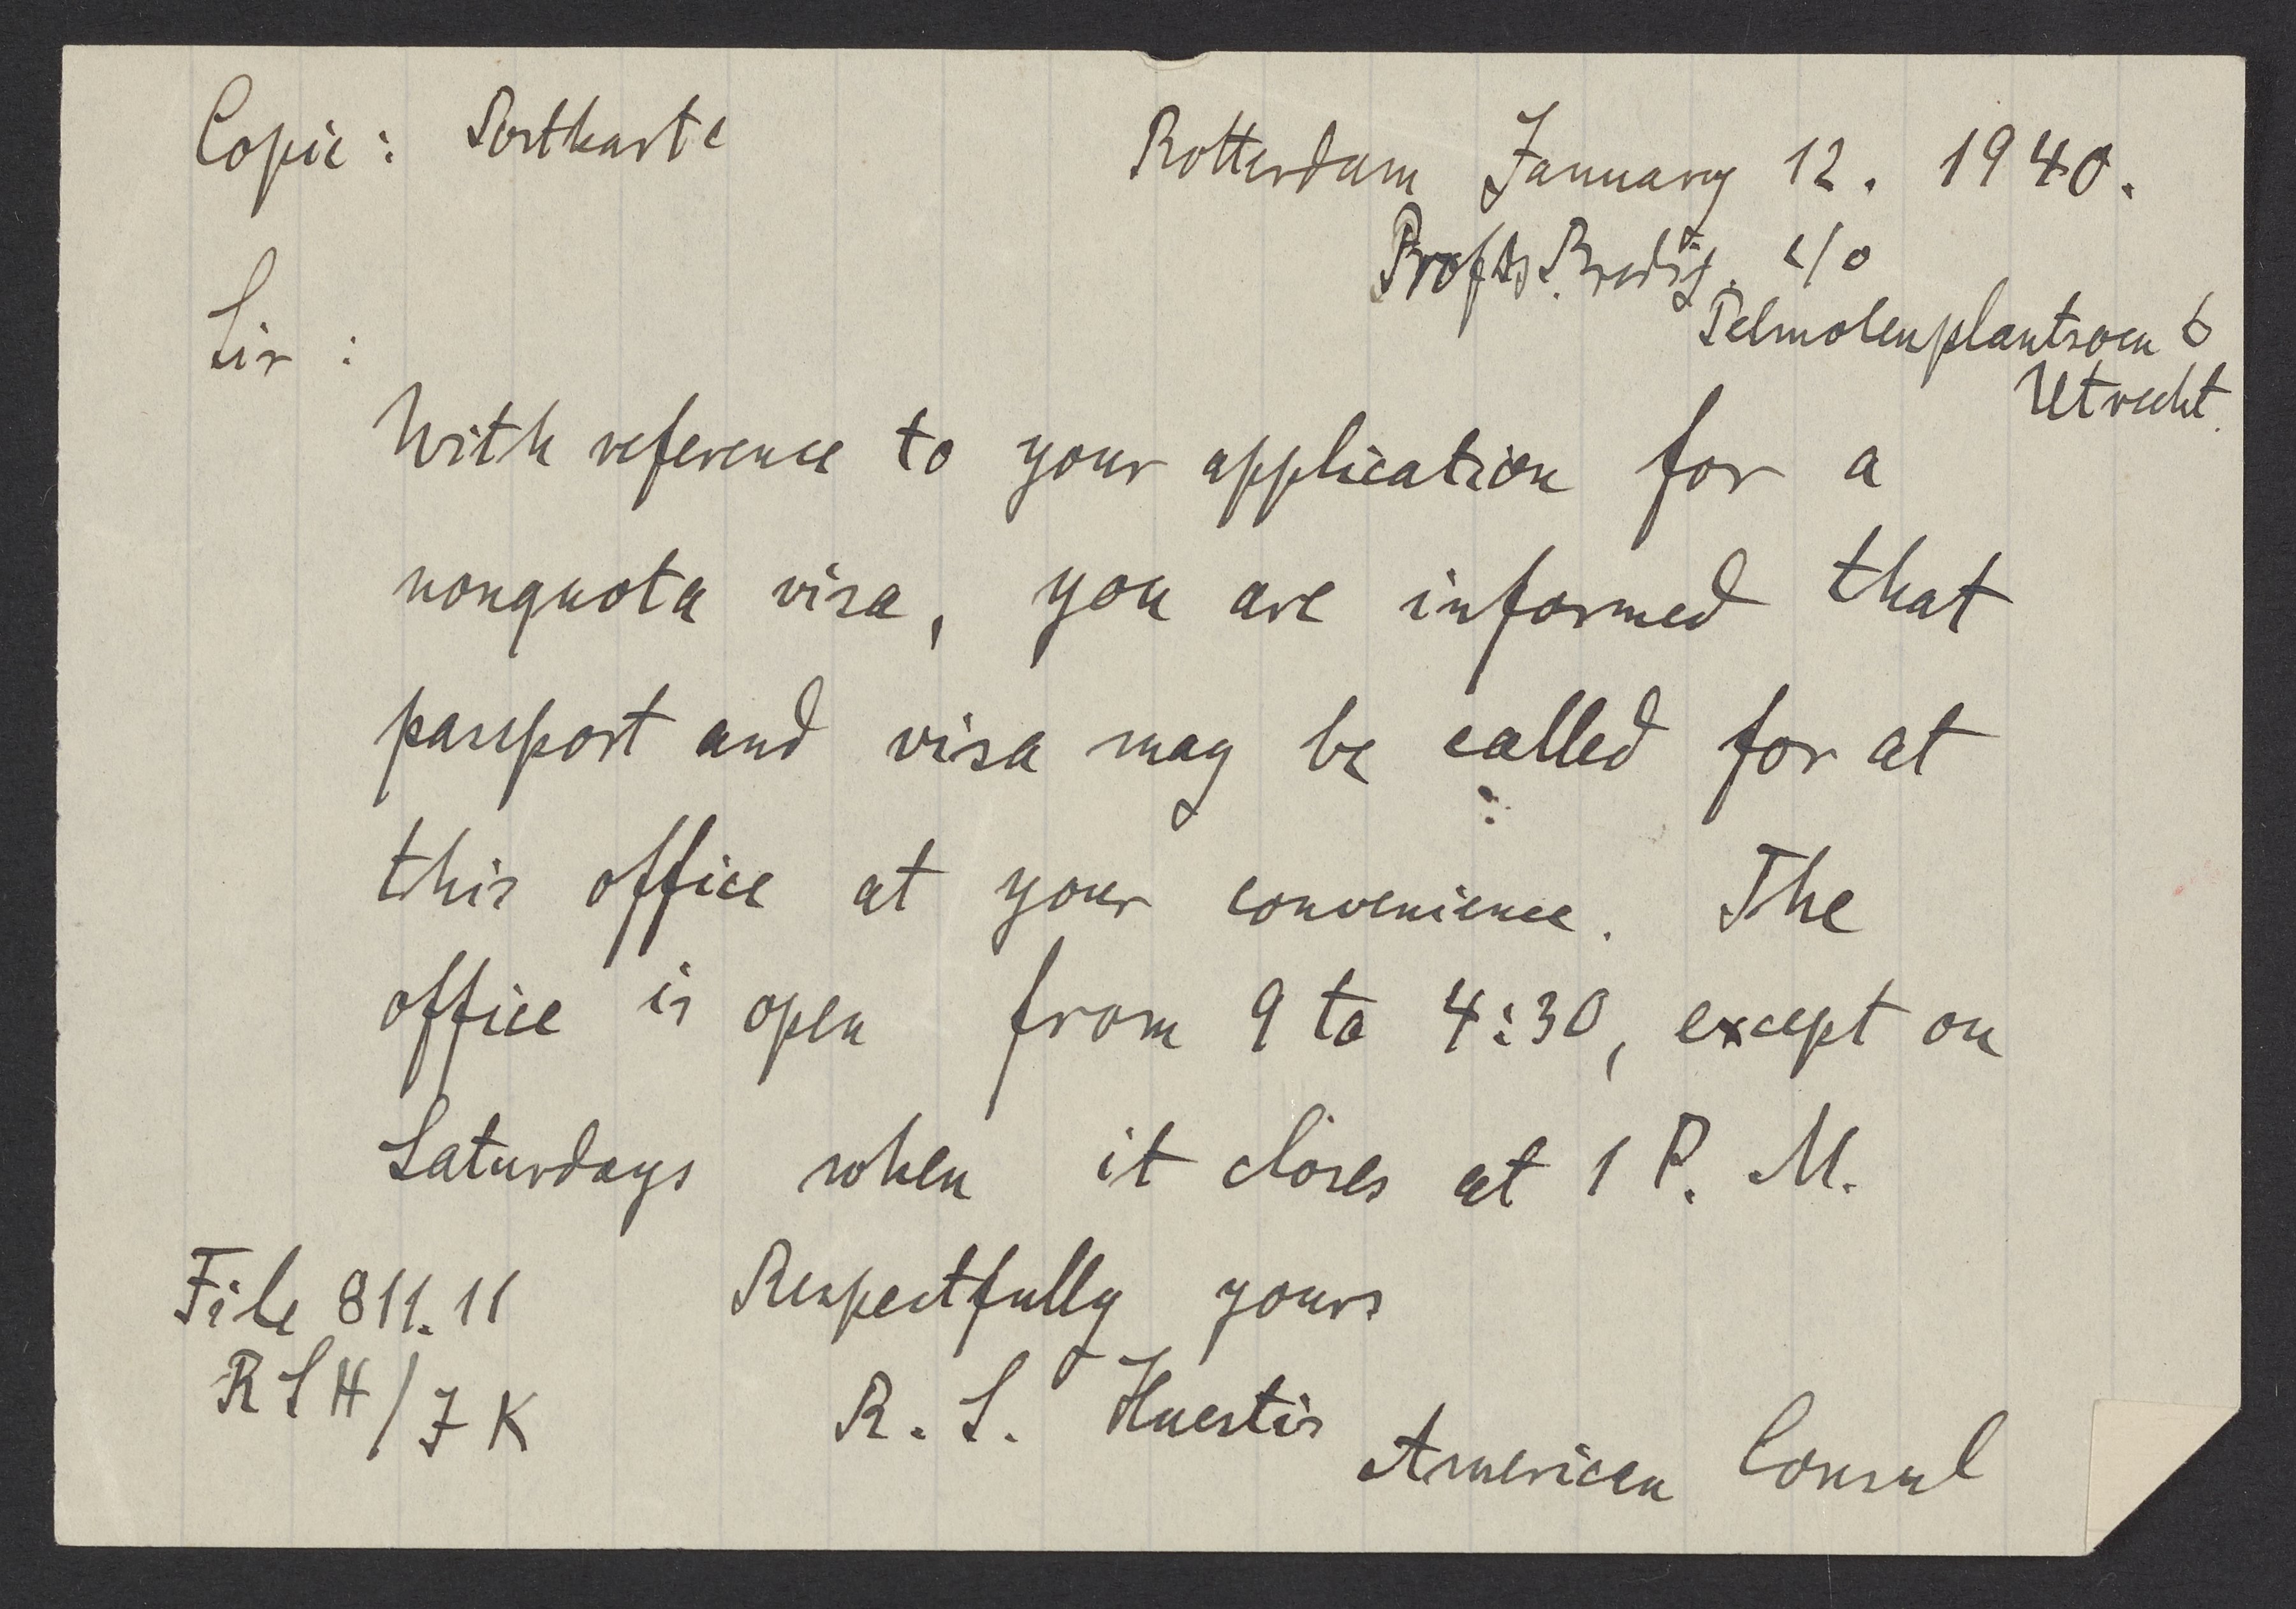 Copie: Postkarte
Rotterdam January 12. 1940.
Prof. Bredig. c/o
Pelmolenplantsoen 6
Utrecht.
Sir:
With reference to your application for a
nonquota visa, you are informed that
passport and visa may be called for at
this office at your convenience. The
office is open from 9 to 4:30, except on
Saturdays when it closes at 1 P. M.
File 811.11
Respectfully yours
RSH/JK
R. S. Huestis
American Consul